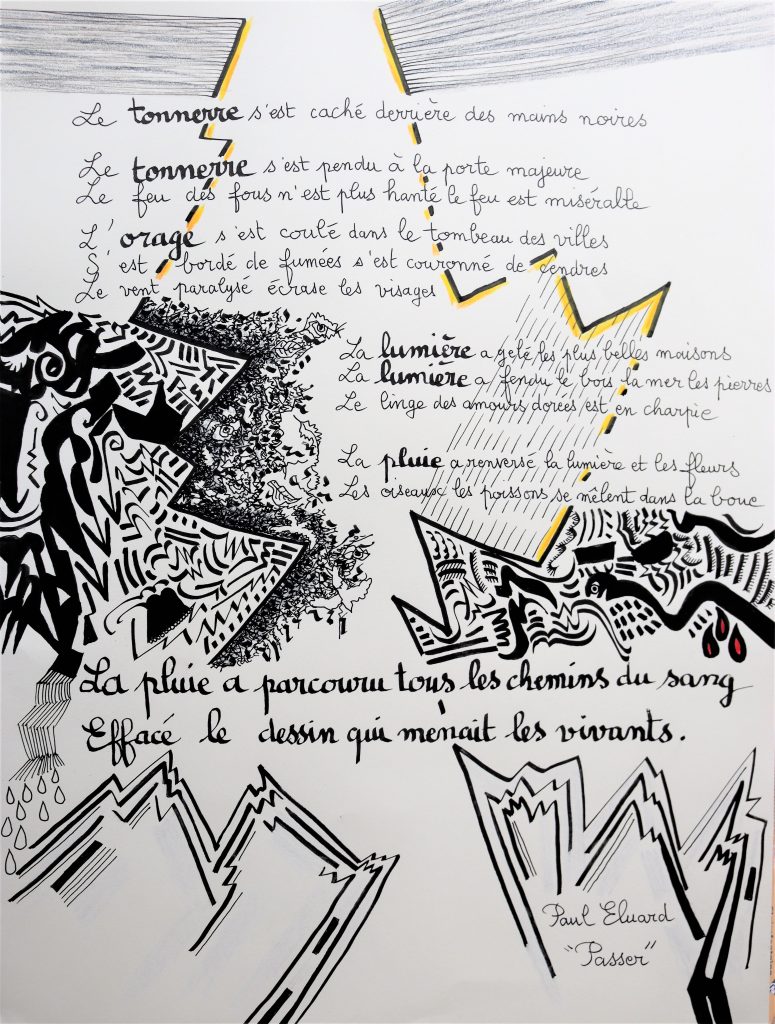 Le tonnerre s'est caché derrière des mains noires
Le tonnerre s'est pendu à la porte majeure
Le feu des fous n'est plus hanté le feu est misérable
L'orage s'est coulé dans le tombeau des villes
S'est bordé de fumées s'est couronné de cendres
Le vent paralysé écrase les visages
La lumière a gelé les plus belles maisons
La lumière a fendu le bois la mer les pierres
Le linge des amours dorées est en charpie
La pluie a renversé la lumière et les fleurs
Les oiseaux les poissons se mêlent dans la boue
La pluie a parcouru tous les chemins du sang
Effacé le dessin qui menait les vivants.
Paul Eluard
"Passer"